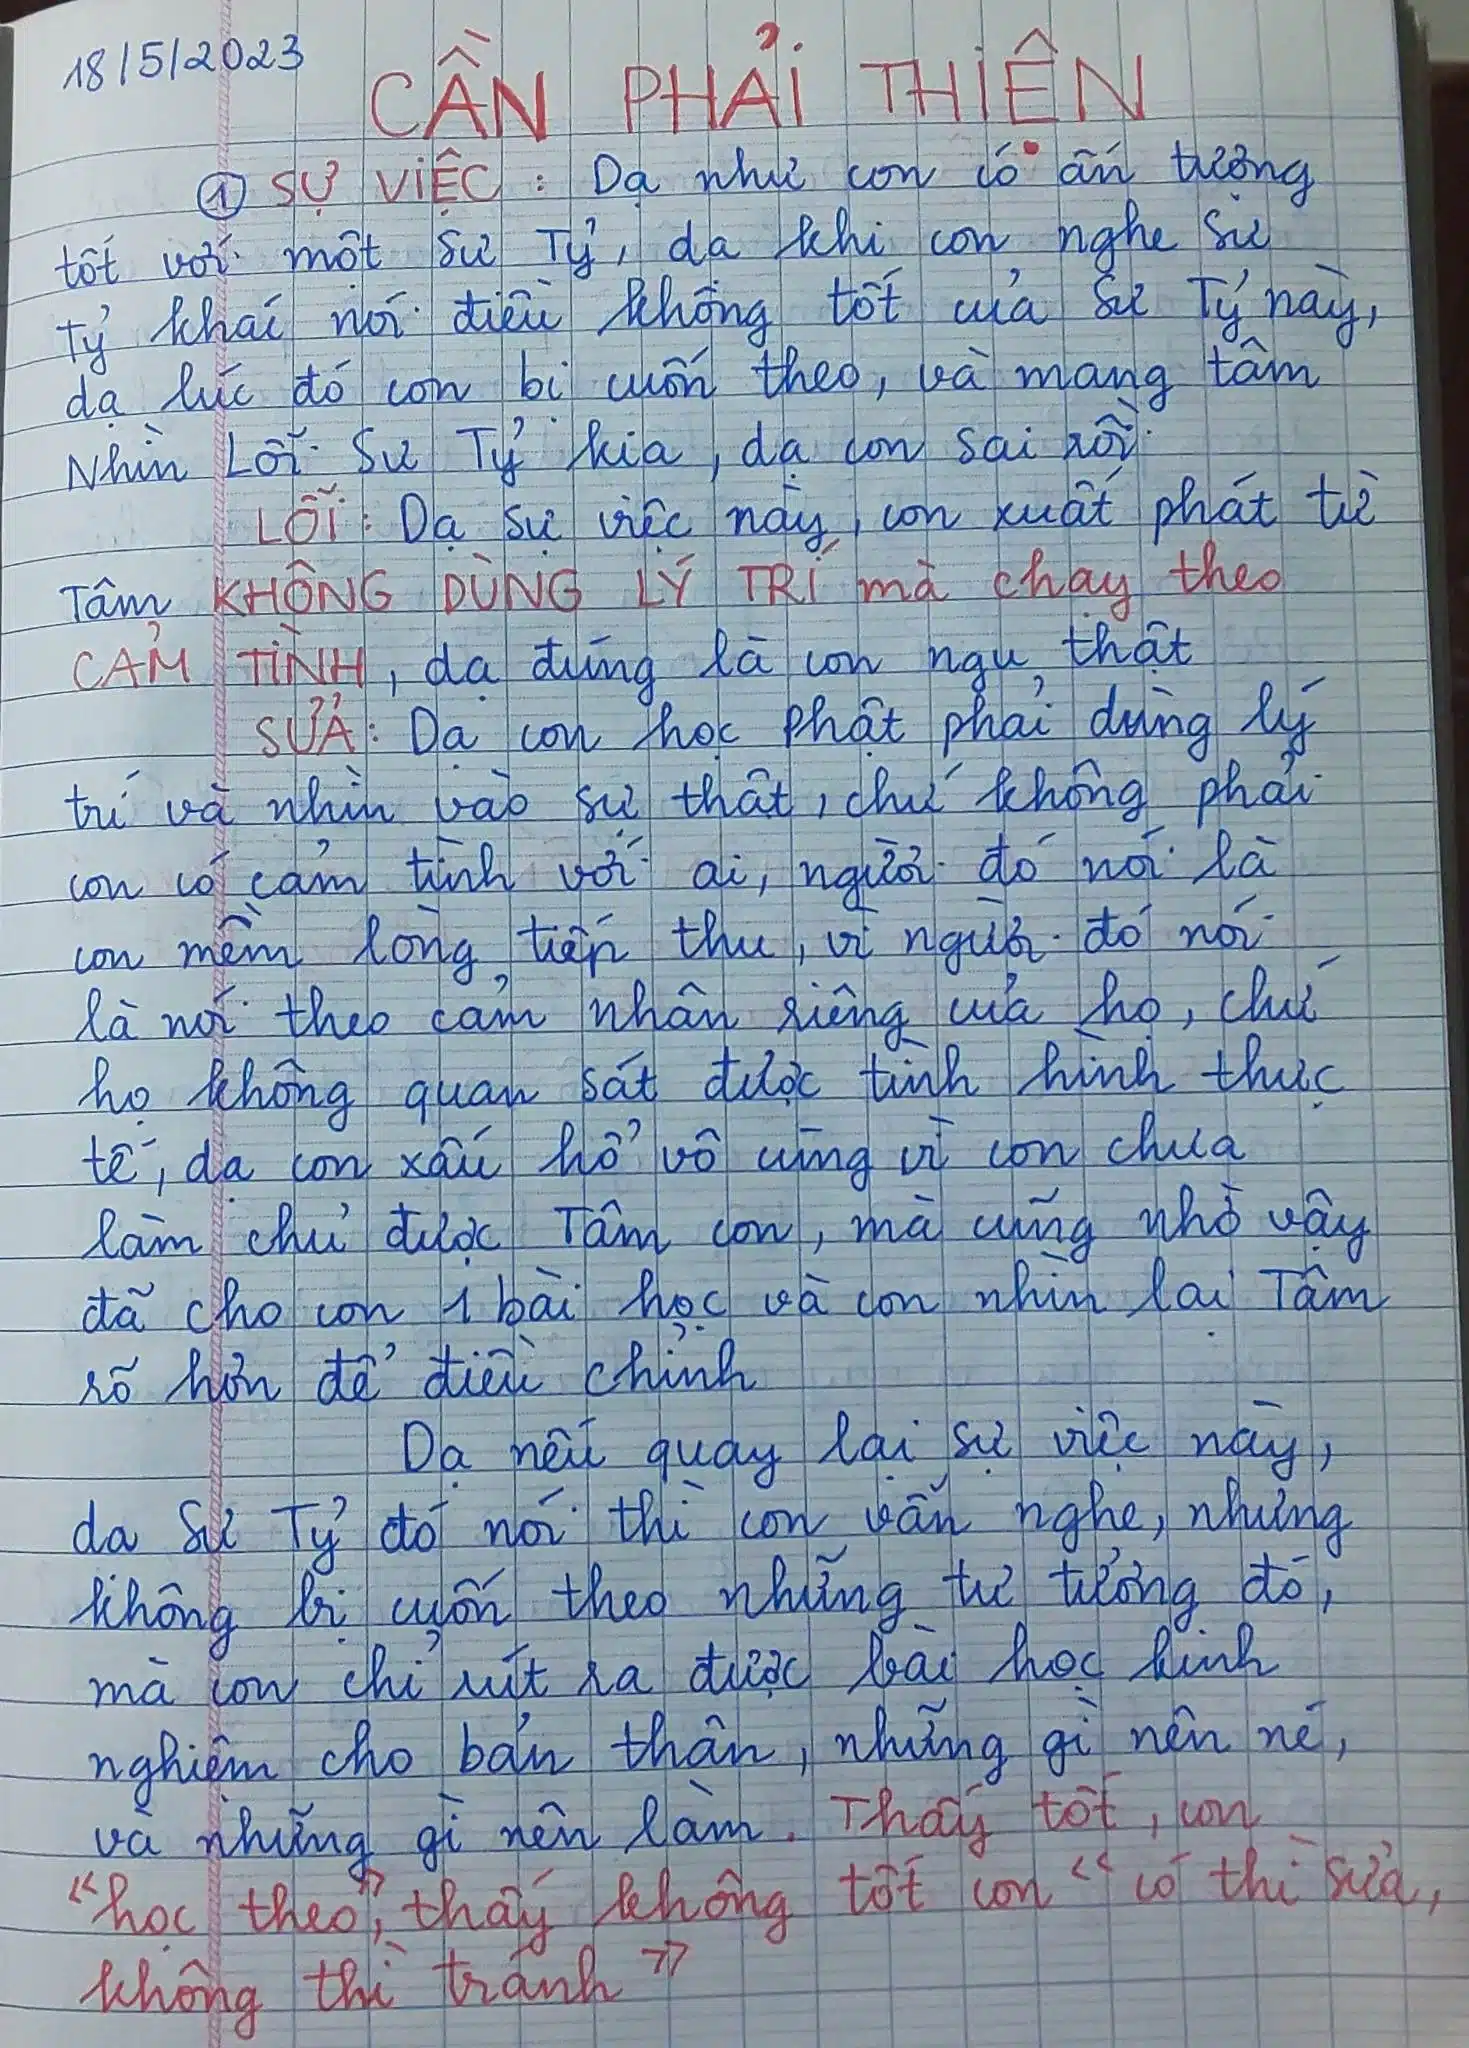 18/5/2023
CẦN PHẢI THIỀN
① SỰ VIỆC : Dạ như con có ấn tượng
tốt với một Sư Tỷ, dạ khi con nghe Sư
Tỷ khác nói điều không tốt của Sư Tỷ này,
dạ lúc đó con bị cuốn theo, và mang tâm
Nhìn Lỗi Sư Tỷ kia, dạ con sai rồi
LỖI : Dạ sự việc này, con xuất phát từ
Tâm KHÔNG DÙNG LÝ TRÍ mà chạy theo
CẢM TÌNH, dạ đúng là con ngu thật
SỬA : Dạ con học Phật phải dùng lý
trí và nhìn vào sự thật, chứ không phải
con có cảm tình với ai, người đó nói là
con mềm lòng tiếp thu, vì người đó nói
là nói theo cảm nhận riêng của họ, chứ
họ không quan sát được tình hình thực
tế, dạ con xấu hổ vô cùng vì con chưa
làm chủ được Tâm con, mà cũng nhờ vậy
đã cho con 1 bài học và con nhìn lại Tâm
rõ hơn để điều chỉnh
Dạ nếu quay lại sự việc này,
dạ Sư Tỷ đó nói thì con vẫn nghe, nhưng
không bị cuốn theo những tư tưởng đó,
mà con chỉ rút ra được bài học kinh
nghiệm cho bản thân, những gì nên né,
và những gì nên làm. Thấy tốt, con
"học theo", thấy không tốt con "có thì sửa,
không thì tránh"